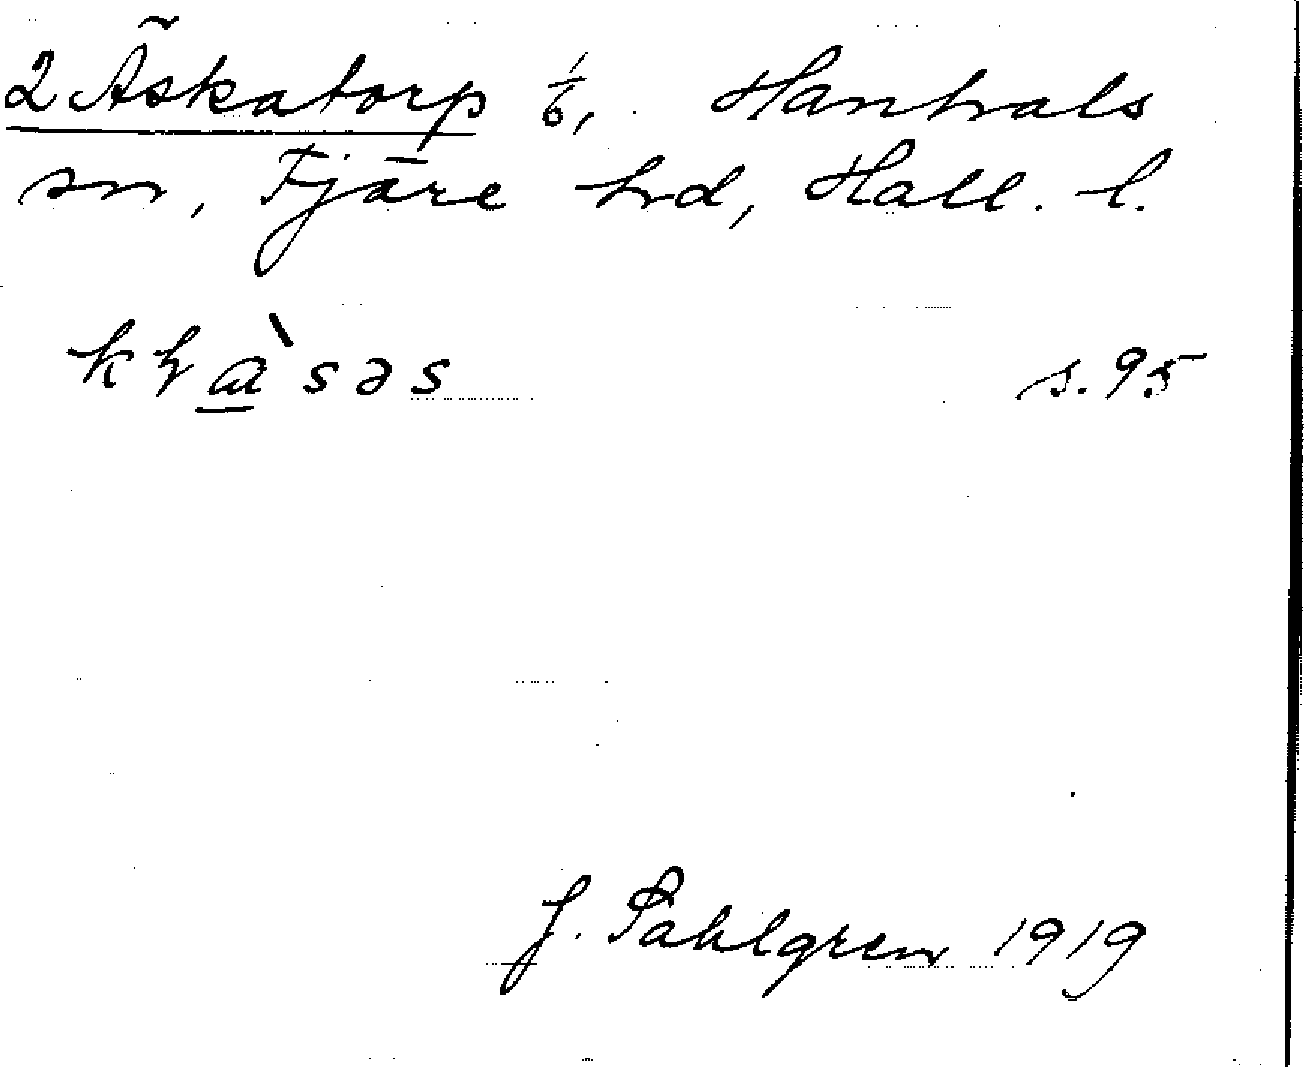 2 Äskatorp 1/6, Hanhals
sn, Fjäre hd, Hall. l.
s. 95
J. Sahlgren 1919